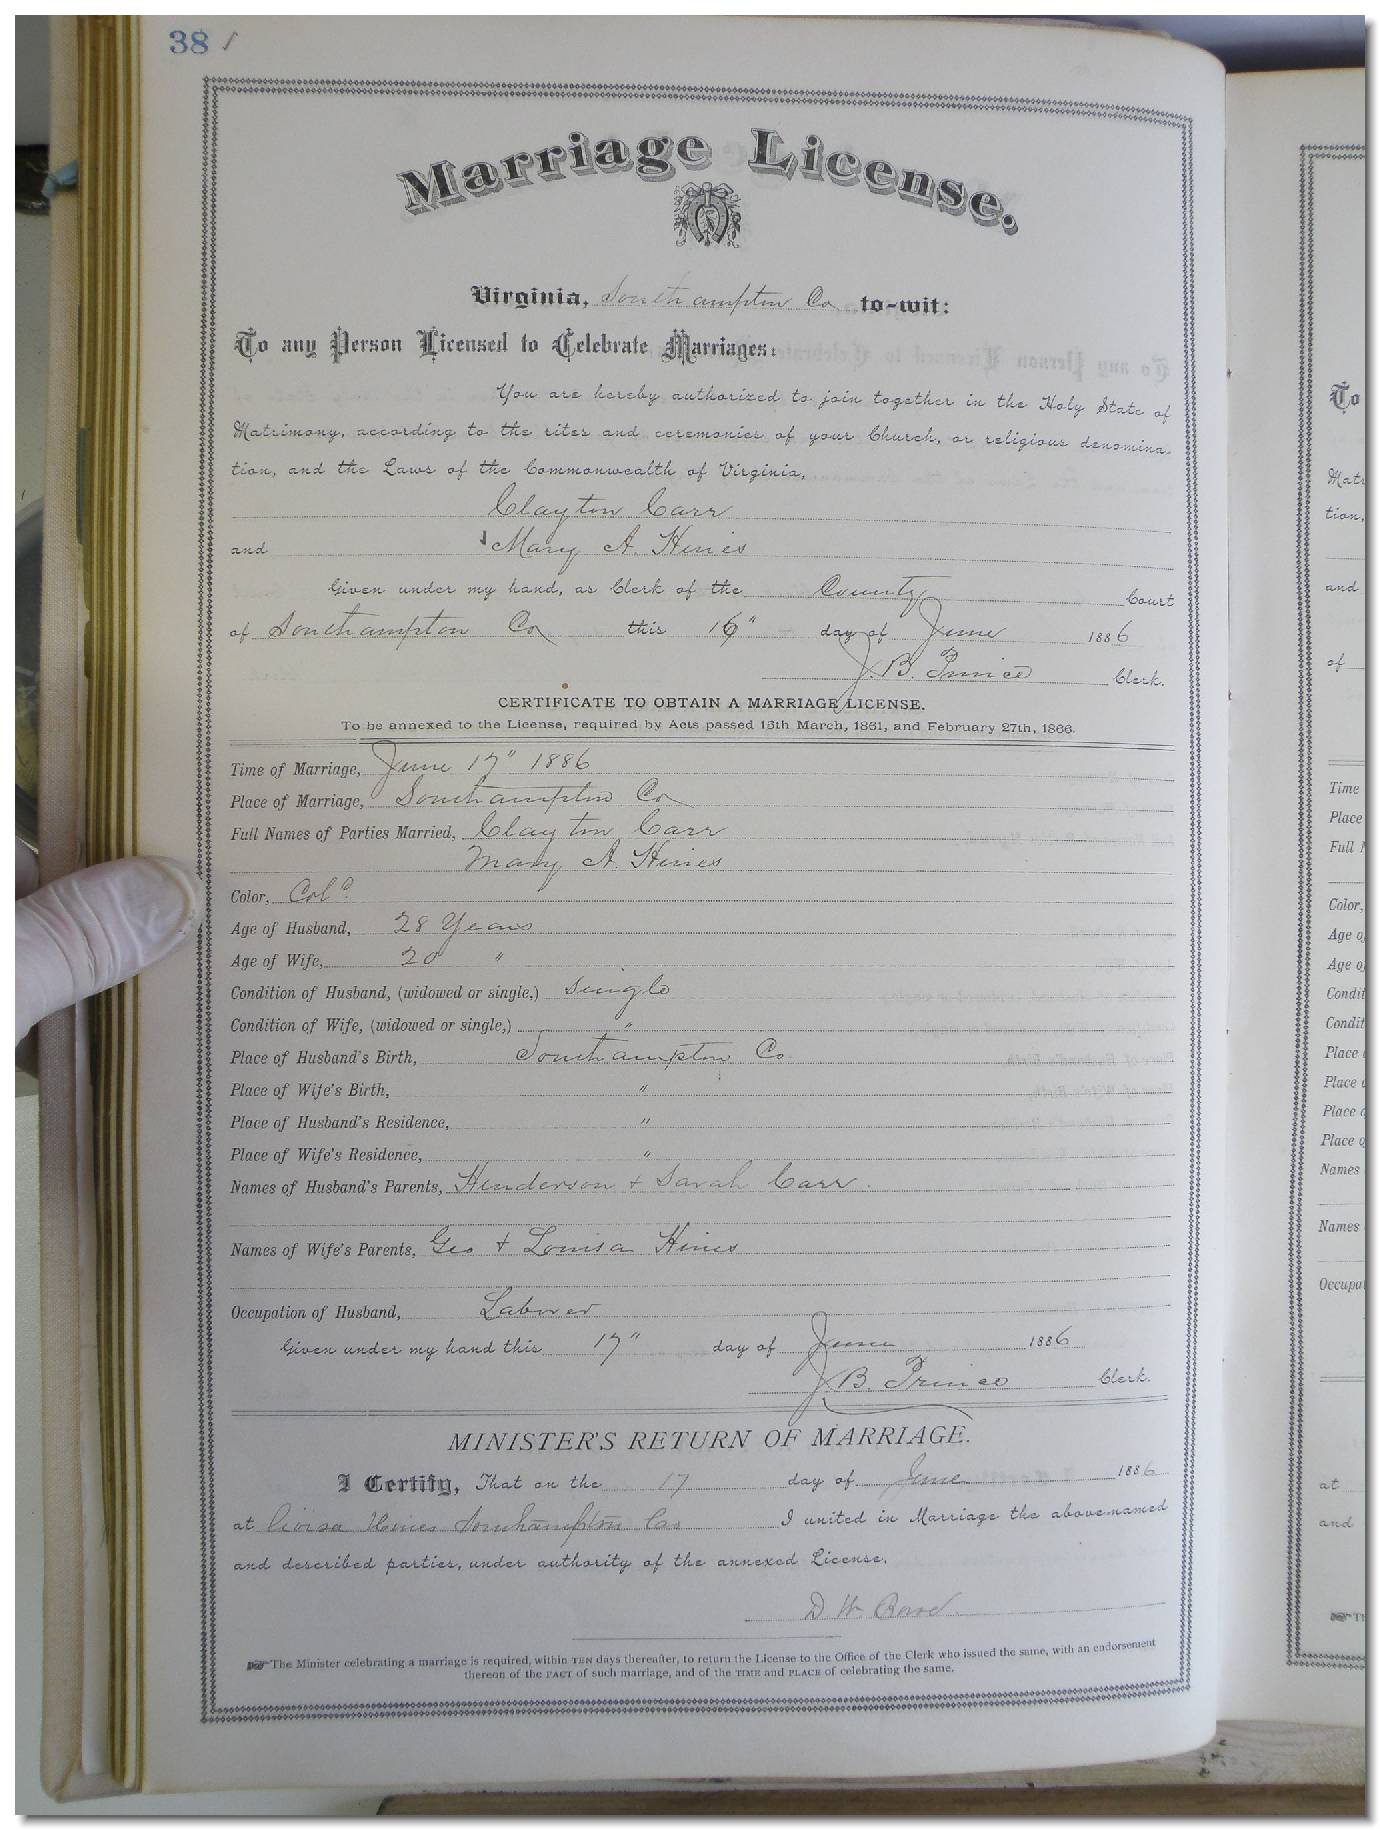 38 ✓
Marriage License.
Virginia, Southampton Co to-wit:
To any Person Licensed to Celebrate Marriages:
You are hereby authorized to join together in the Holy State of
Matrimony, according to the rites and ceremonies of your Church, or religious denomina-
tion, and the Laws of the Commonwealth of Virginia,
Clayton Carr
and Mary A. Hines
Given under my hand, as Clerk of the County Court
of Southampton Co this 16" day of June 1886
J. B. Prince Clerk.
CERTIFICATE TO OBTAIN A MARRIAGE LICENSE.
To be annexed to the License, required by Acts passed 15th March, 1861, and February 27th, 1866.
Time of Marriage, June 17" 1886
Place of Marriage, Southampton Co
Full Names of Parties Married, Clayton Carr
Mary A. Hines
Color, Cold.
Age of Husband, 28 Years
Age of Wife, 20 "
Condition of Husband, (widowed or single,) Single
Condition of Wife, (widowed or single,) "
Place of Husband's Birth, Southampton Co.
Place of Wife's Birth, "
Place of Husband's Residence, "
Place of Wife's Residence, "
Names of Husband's Parents, Henderson + Sarah Carr.
Names of Wife's Parents, Geo + Louisa Hines
Occupation of Husband, Laborer
Given under my hand this 17" day of June 1886
J B. Prince Clerk.
MINISTER'S RETURN OF MARRIAGE.
I Certify, That on the 17 day of June 1886
at Hines Southampton Co I united in Marriage the above-named
and described parties, under authority of the annexed License.
D W
The Minister celebrating a marriage is required, within TEN days thereafter, to return the License to the Office of the Clerk who issued the same, with an endorsement
thereon of the FACT of such marriage, and of the TIME and PLACE of celebrating the same.
To
Matr
tion,
and
of
Time
Place
Full
Color,
Age o
Age o
Condit
Condit
Place
Place
Place
Place
Names
Names
Occupa
at
and